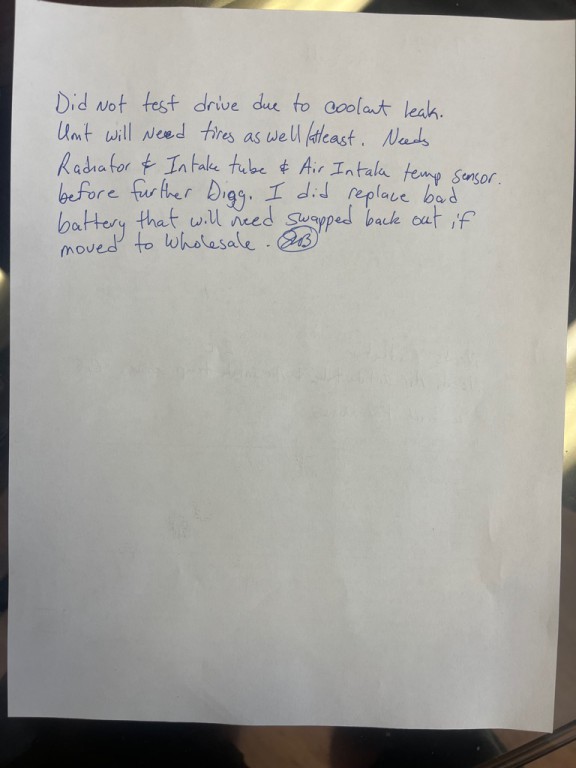 Did Not test drive due to coolant leak.
Unit will Need tires as well/atleast. Needs
Radiator & Intake tube & Air Intake temp sensor.
before further Digg. I did replace bad
battery that will need swapped back out if
moved to Wholesale.